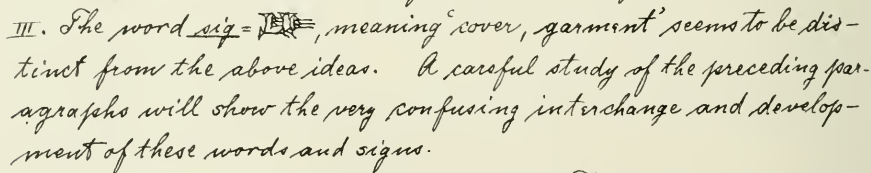 III. The word sig = , meaning ‘cover, garment’ seems to be dis-
tinct from the above ideas. A careful study of the preceding par-
agraphs will show the very confusing interchange and develop-
ment of these words and signs.